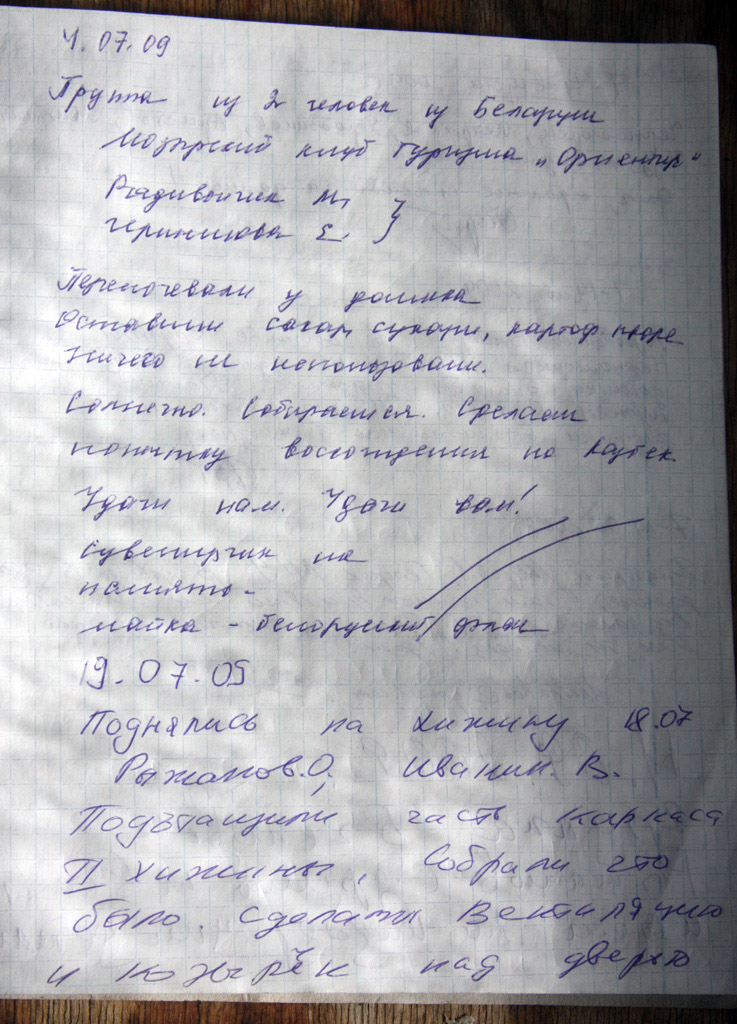 4.07.09
Группа из 2х человек из Беларуси
Мозырский клуб туризма „Ориентир"
М.
Е.
Переночевали у домика
Оставили сахар, сухари, картоф. пюре
Ничего не использовали.
Солнечно. Собираемся. Сделаем
попытку восхождения на Казбек
Удачи нам. Удачи вам!
Сувенирчик на
память -
майка - белорусский флаг
19.07.09
Поднялись на хижину 18.07
Рыжанов.О. Иванин. В.
Подътащили часть каркаса
II хижины, Собрали что
было. Сделали Вентиляцию
и козырёк над дверью